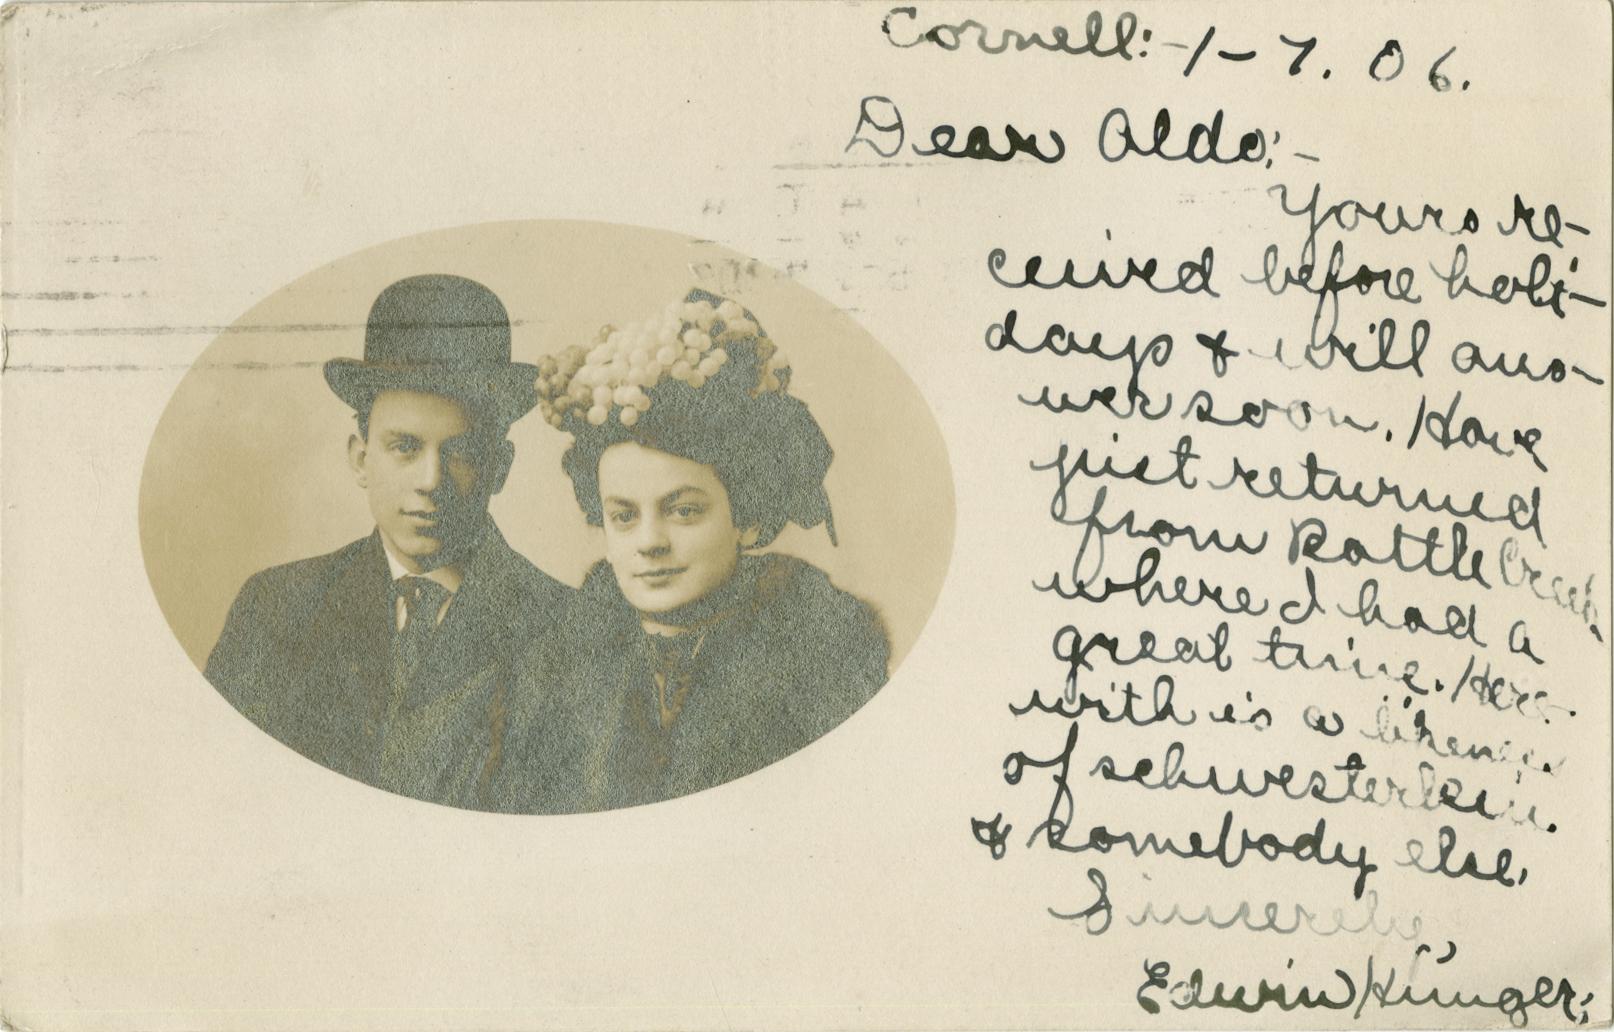 Cornell:-1-7.06.
Dear Aldo:-
Yours re-
ceived before holi-
days & will ans-
wer soon. Have
just returned
from Battle Creek
where I had a
great time. Here-
with is a likeness
of schwesterlein.
& somebody else.
Sincerely,
Edwin Hunger: